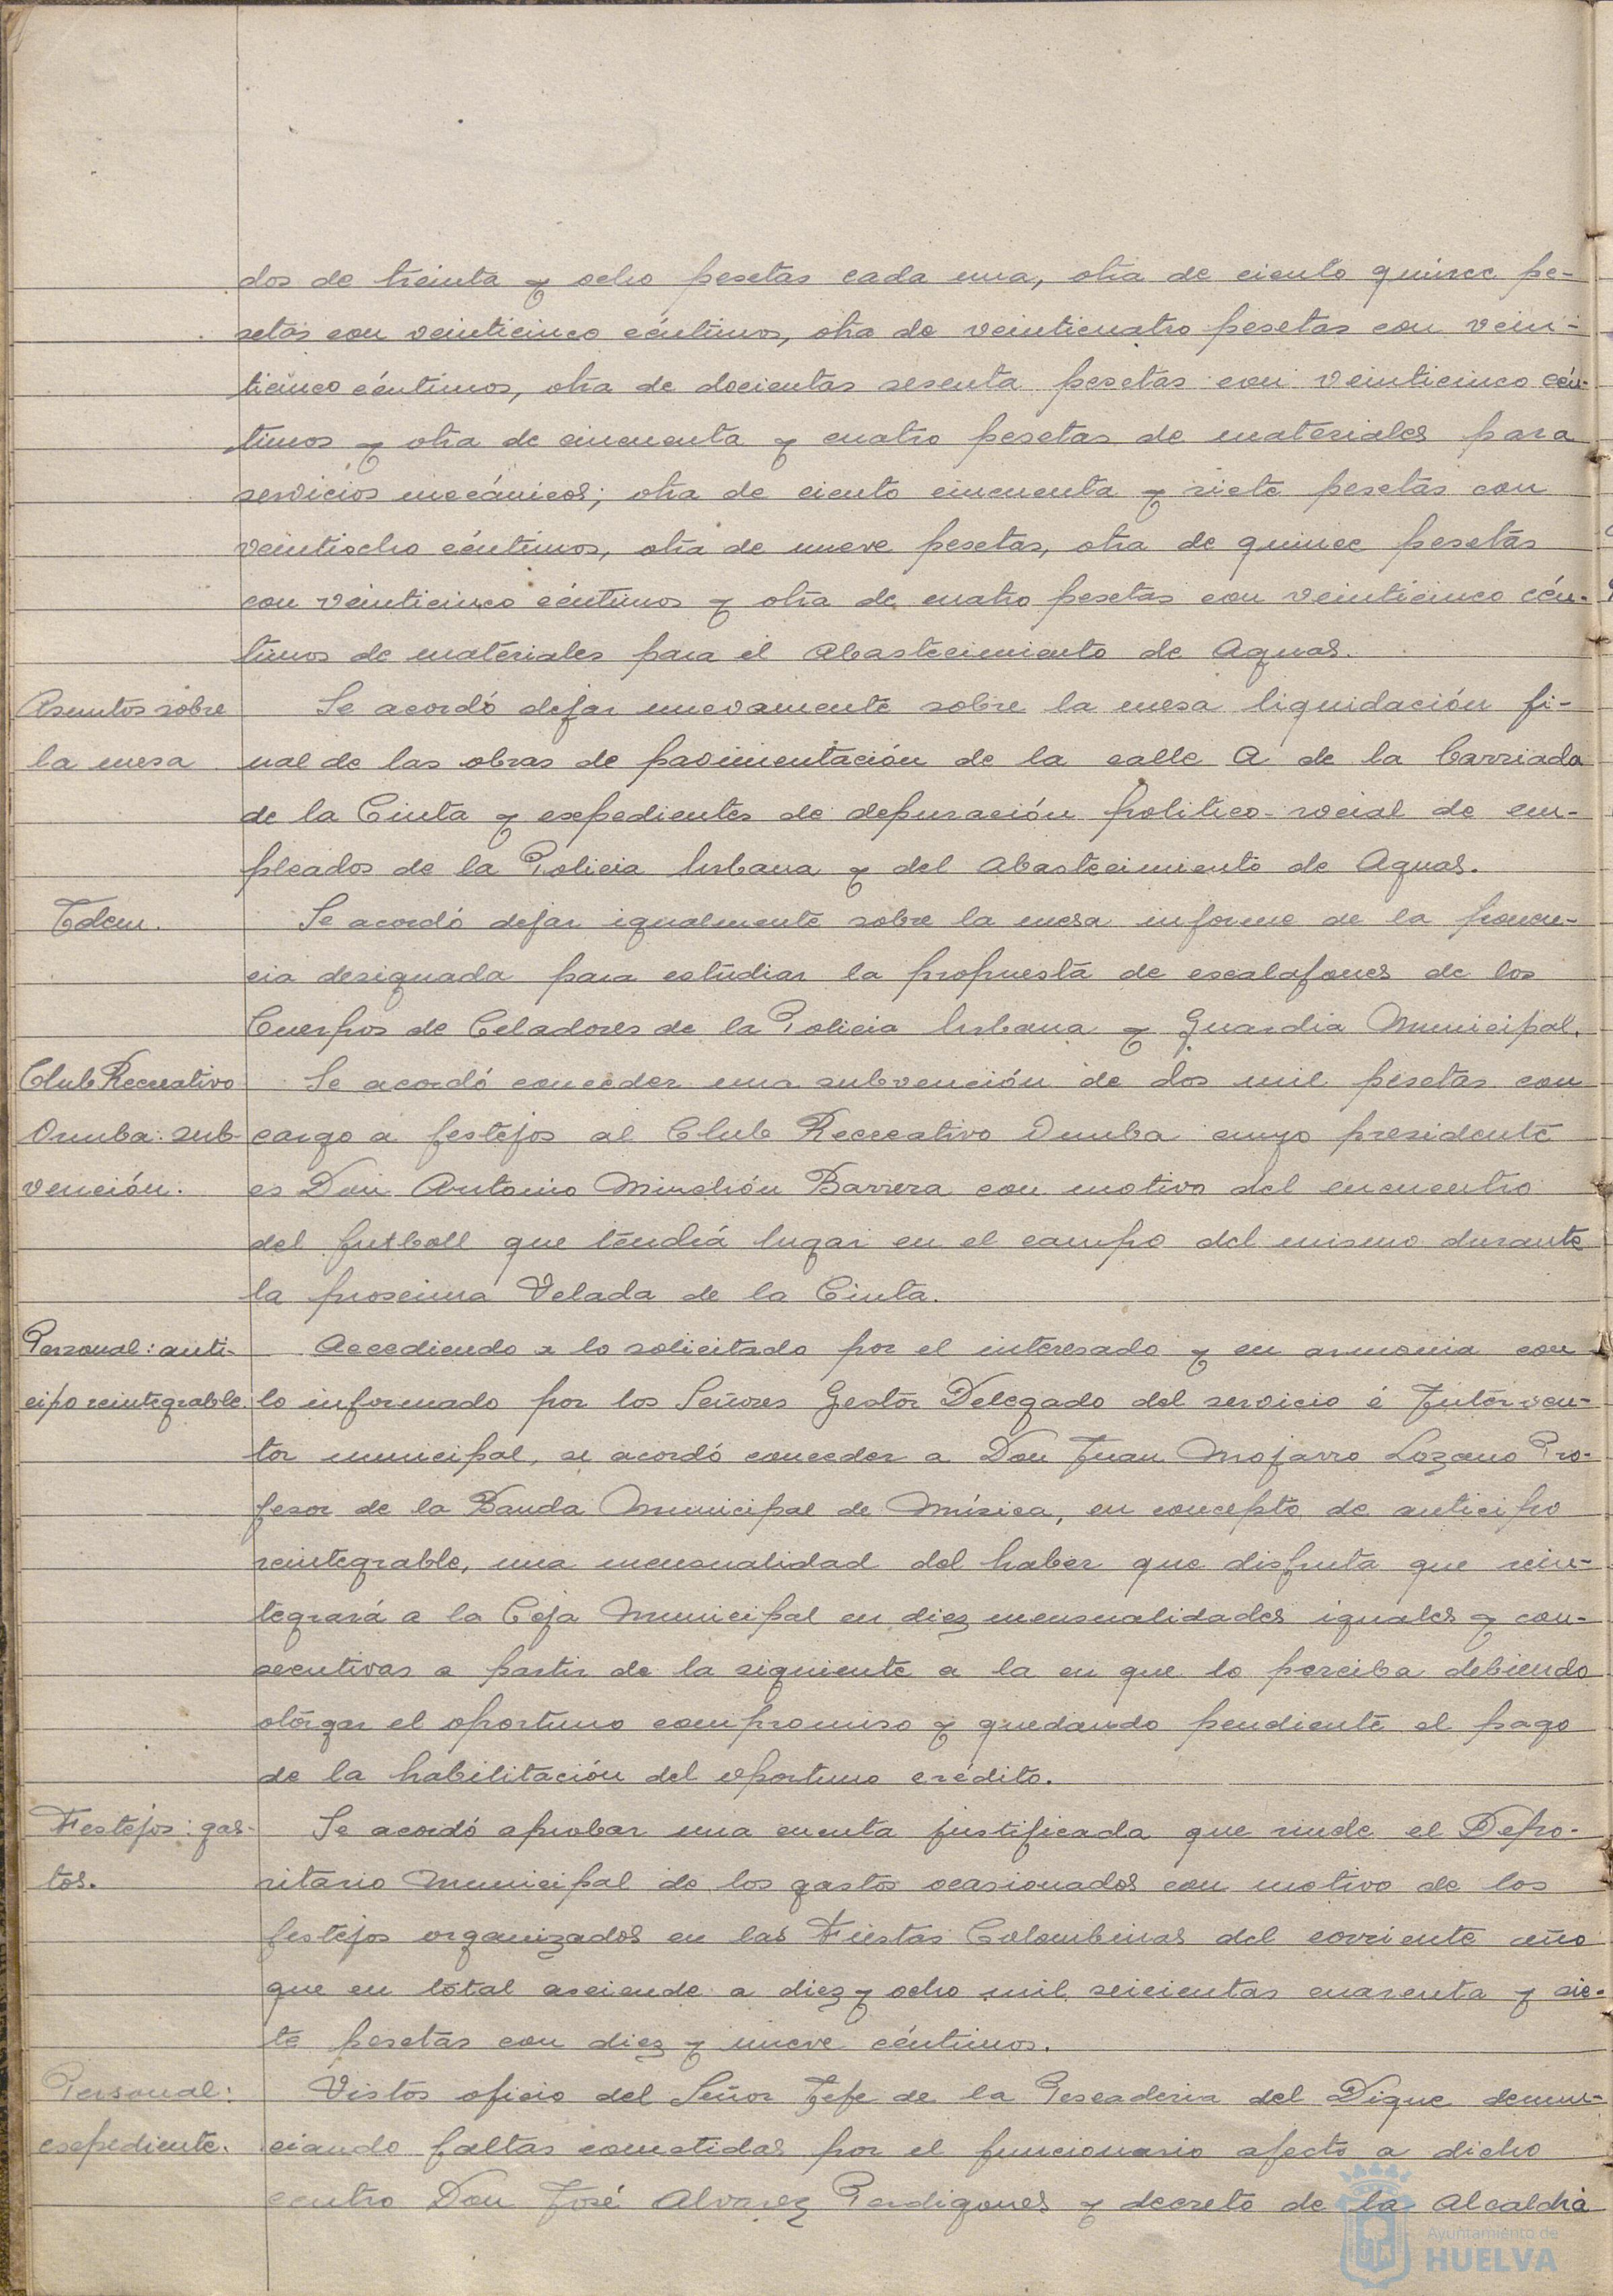 dos de treinta y ocho pesetas cada una, otra de ciento quince pe-
setas con veinticinco céntimos, otra de veinticuatro pesetas con vein-
ticinco céntimos, otra de docientas sesenta pesetas con veinticinco cén-
timos y otra de cincuenta y cuatro pesetas de materiales para
servicios mecánicos; otra de ciento cincuenta y siete pesetas con
veintiocho céntimos, otra de nueve pesetas, otra de quince pesetas
con veinticinco céntimos y otra de cuatro pesetas con veinticinco cén-
timos de materiales para el Abastecimiento de Aguas.
Asuntos sobre
la mesa
Se acordó dejar nuevamente sobre la mesa liquidación fi-
nal de las obras de pavimentación de la calle A de la barriada
de la Cinta y expedientes de depuración politico-social de em-
pleados de la Policia Urbana y del Abastecimiento de Aguas.
Idem.
Se acordó dejar igualmente sobre la mesa informe de la ponen-
cia designada para estudiar la propuesta de escalafones de los
Cuerpos de Celadores de la Policia Urbana y Guardia Municipal.
Club Recreativo
Onuba: sub-
vención.
Se acordó conceder una subvención de dos mil pesetas con
cargo a festejos al Club Recreativo Onuba cuyo presidente
es Don Antonio Minchón Barrera con motivo del encuentro
del futboll que tendrá lugar en el campo del mismo durante
la proxima Velada de la Cinta.
Personal: anti-
cipo reintegrable.
Accediendo a lo solicitado por el interesado y en armonia con
lo informado por los Señores Gestor Delegado del servicio é Interven-
tor municipal, se acordó conceder a Don Juan Mojarro Lozano Pro-
fesor de la Banda Municipal de Música, en concepto de anticipo
reintegrable, una mensualidad del haber que disfruta que rein-
tegrará a la Caja Municipal en diez mensualidades iguales y con-
secutivas a partir de la siguiente a la en que lo perciba debiendo
otorgar el oportuno compromiso y quedando pendiente el pago
de la habilitación del oportuno crédito.
Festejos: gas-
tos.
Se acordó aprobar una cuenta justificada que rinde el Depo-
sitario Municipal de los gastos ocasionados con motivo de los
festejos organizados en las Fiestas Colombinas del corriente año
que en total asciende a diez y ocho mil seicientas cuarenta y sie-
te pesetas con diez y nueve céntimos.
Personal:
expediente.
Vistos oficio del Señor Jefe de la Pescaderia del Dique denun-
ciando faltas cometidas por el funcionario afecto a dicho
centro Don José Alvarez Perdigones y decreto de la Alcaldia
Ayuntamiento de
HUELVA